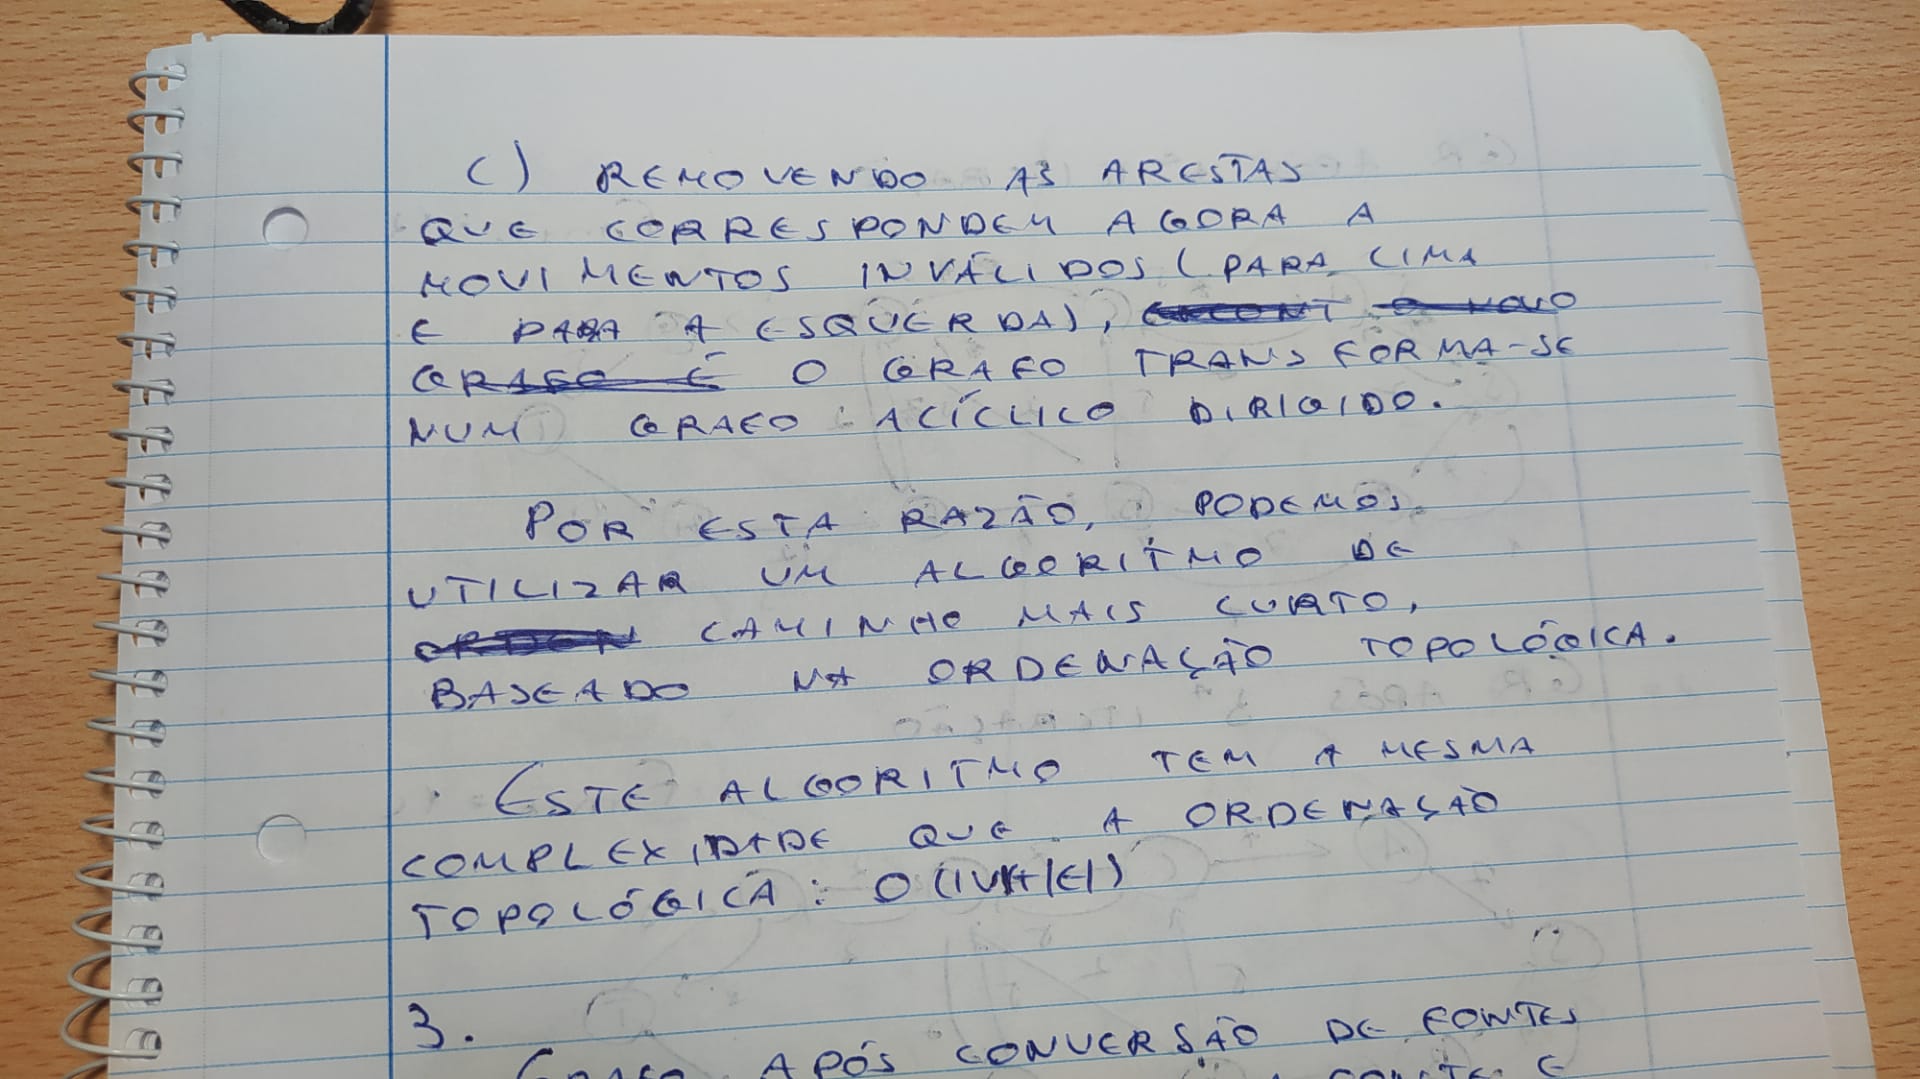 C) REMOVENDO AS ARESTAS
QUE CORRESPONDEM AGORA A
MOVIMENTOS INVÁLIDOS (PARA CIMA
E PARA A ESQUERDA), O NOVO
GRAFO É O GRAFO TRANSFORMA-SE
NUM GRAFO ACÍCLICO DIRIGIDO.
POR ESTA RAZÃO, PODEMOS
UTILIZAR UM ALGORITMO DE
ORDEN CAMINHO MAIS CURTO,
BASEADO NA ORDENAÇÃO TOPOLÓGICA.
ESTE ALGORITMO TEM A MESMA
COMPLEXIDADE QUE A ORDENAÇÃO
TOPOLÓGICA: O(|V|+|E|)
3.
GRAFO APÓS CONVERSÃO DE FONTES